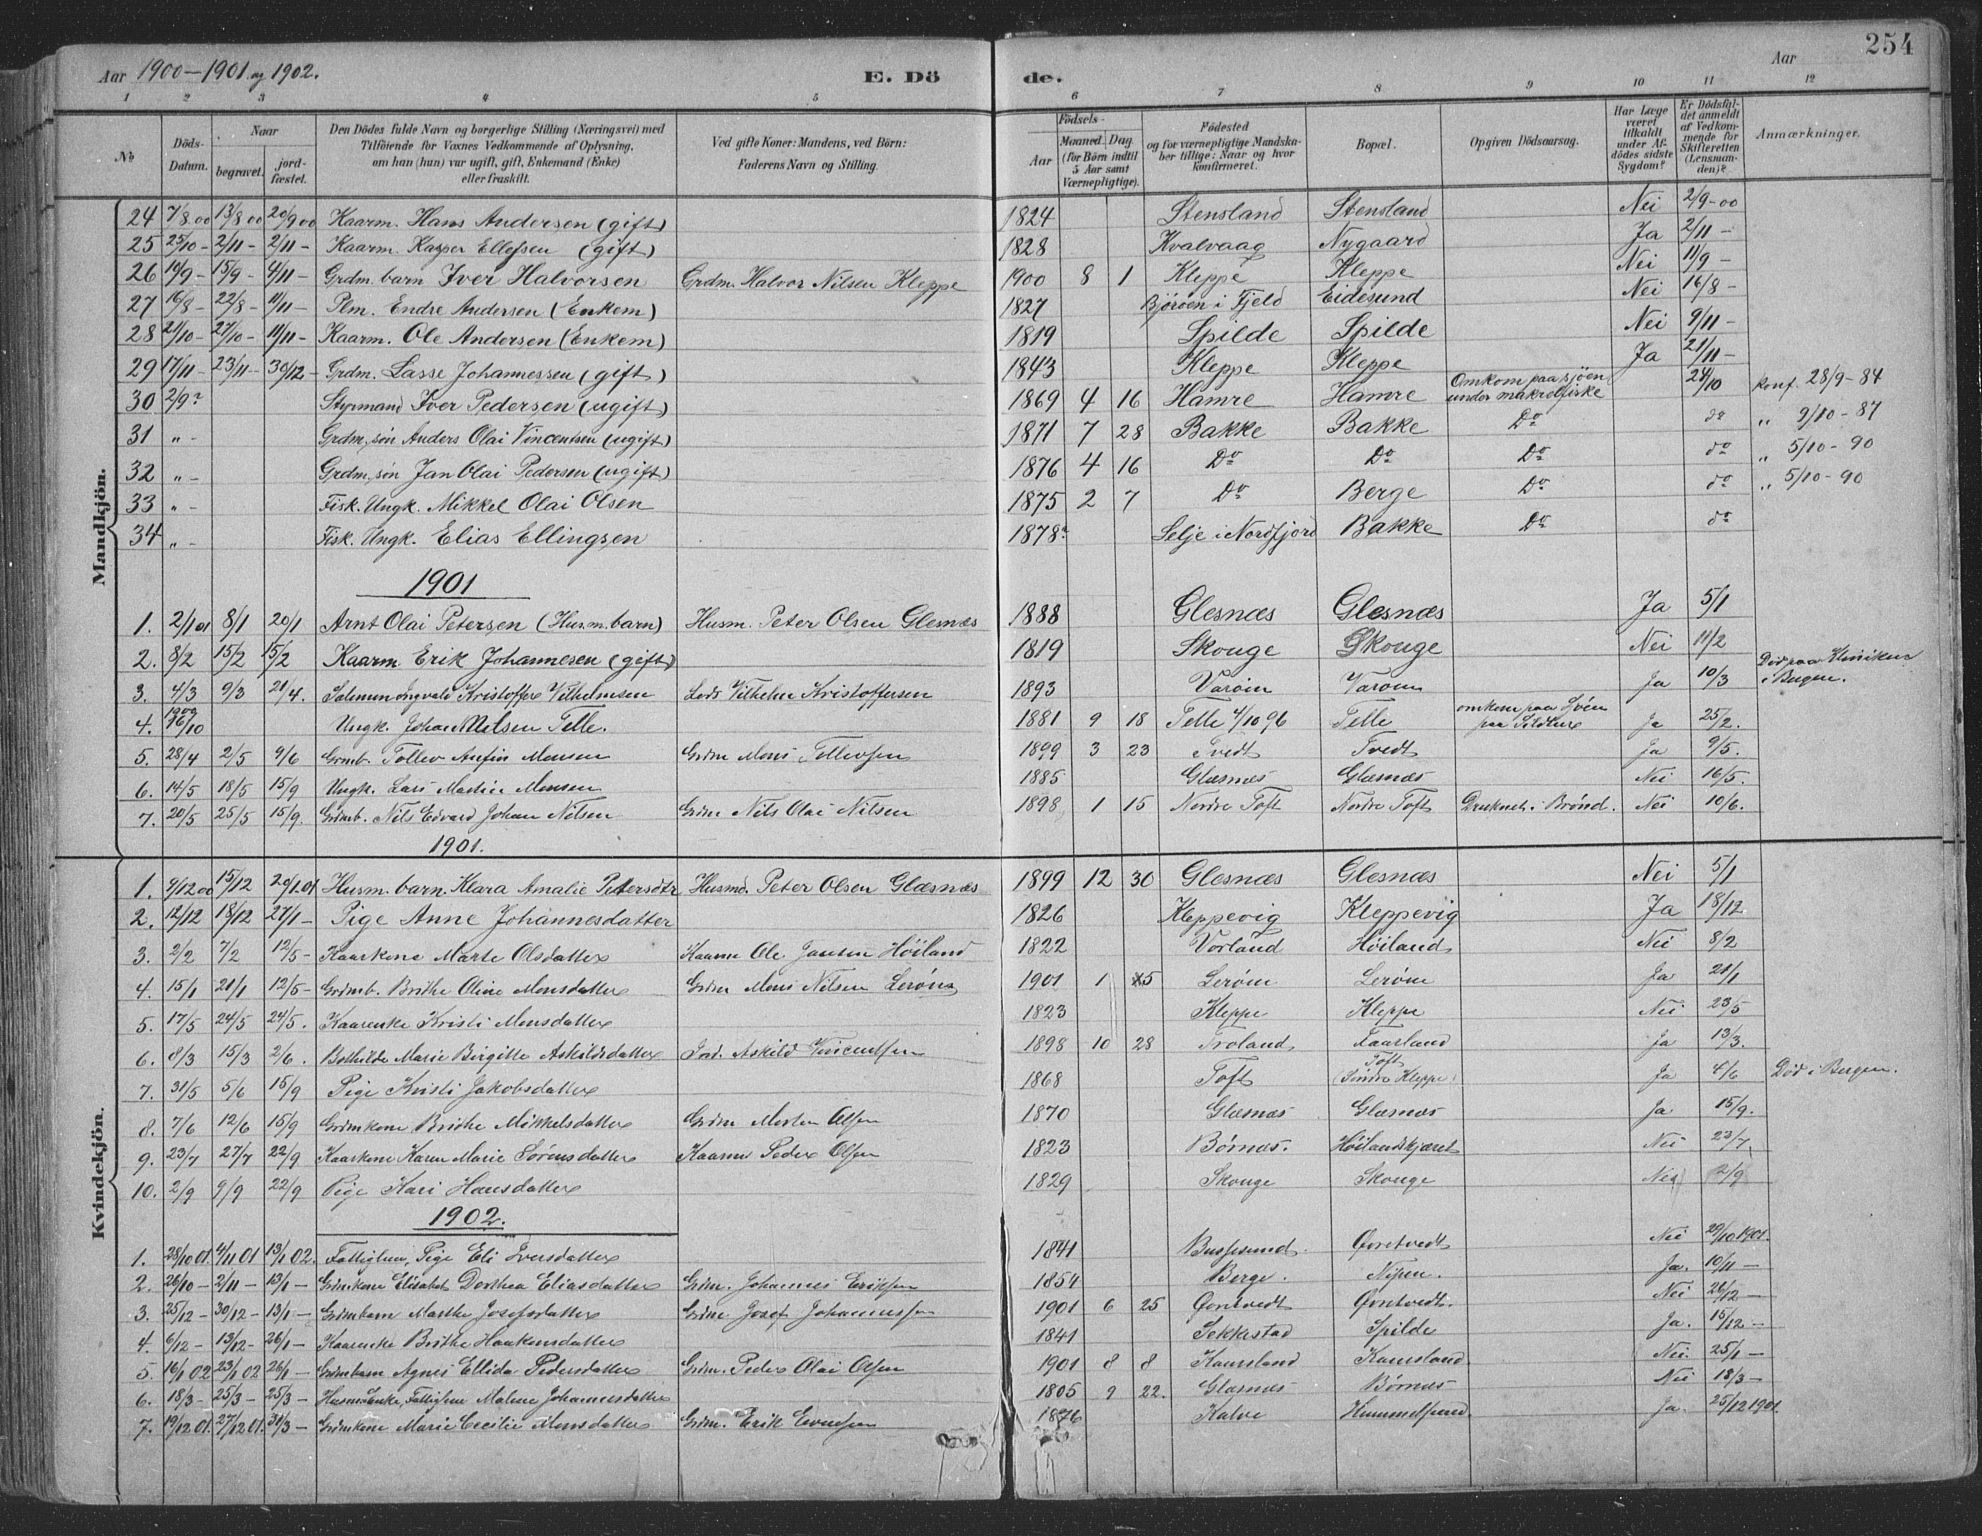 254
Aar 1900-1901 og 1902. E. Dö de. Aar
1 2 3 4 5 6 7 8 9 10 11 12
No Döds-Datum. Naar begravet. jordfæstet. Den Dödes fulde Navn og borgerlige Stilling (Næringsvei) med Tilföiende for Voxnes Vedkommende af Oplysning, om han (hun) var ugift, gift, Enkemand (Enke) eller fraskilt. Ved gifte Koner: Mandens, ved Börn: Faderens Navn og Stilling. Födsels- Aar Maaned Dag (for Börn indtil 5 Aar samt Værnepligtige). Födested og for værnepligtige Mandskaber tillige: Naar og hvor konfirmeret. Bopæl. Opgiven Dödsaarsag. Har Læge været tilkaldt under Afdödes sidste Sygdom? Er Dödsfaldet anmeldt af Vedkommende for Skifteretten (Lensmanden)? Anmærkninger.
Mandkjön.
24 7/8 00 13/8 00 20/9 00 Kaarm. Hans Andersen (gift) 1824 Stensland Stensland Nei 2/9-00
25 25/10 - 2/11 - 2/11 - Kaarm. Kasper Ellefsen (gift) 1828 Kvalvaag Nygaard Ja 2/11 -
26 19/9 - 15/9 - 4/11 - Grdm. barn Iver Halvorsen Grdm. Halvor Nilsen Kleppe 1900 8 1 Kleppe Kleppe Nei 11/9 -
27 16/8 - 22/8 - 11/11 - Plm. Endre Andersen (Enkem) 1827 Björöen i Fjeld Eidesund Nei 16/8 -
28 21/10 - 27/10 - 11/11 - Kaarm. Ole Andersen (Enkem) 1819 Spilde Spilde Nei 9/11 -
29 17/11 - 23/11 - 30/12 - Grdm. Lasse Johannessen (gift) 1843 Kleppe Kleppe Ja 21/11 -
30 2/9? Styrmand Iver Pedersen (ugift) 1869 4 16 Hamre Hamre Omkom paa sjöen under makrelfiske 24/10 konf. 28/9-84
31 " - Grdm. sön Anders Olai Vincentsen (ugift) 1871 7 28 Bakke Bakke Do do " 9/10-87
32 " - Grdm. sön Jan Olai Pedersen (ugift) 1876 4 16 Do Do Do do " 5/10-90
33 " - Fisk. Ungk. Mikkel Olai Olsen 1875 2 7 Do Berge Do do " 5/10-90
34 " - Fisk. Ungk. Elias Ellingsen 1878? Selje i Nordfjord Bakke Do do
1901
1. 2/1 01 8/1 20/1 Arnt Olai Petersen (Husm. barn) Husm. Peter Olsen Glesnæs 1888 Glesnæs Glesnæs Ja 5/1
2. 8/2 15/2 15/2 Kaarm. Erik Johannesen (gift) 1819 Skouge Skouge Nei 11/2
3. 4/3 9/3 21/4. Salemon Ingvald Kristoffer Vilhelmsen Lods Vilhelm Kristoffersen 1893 Varöin Varöin Ja 10/3 Död paa Kliniken i Bergen.
4. 1900 16/10 Ungk. Johan Nilsen Telle. 1881 9 18 Telle 4/10 96 Telle omkom paa Sjöen paa Ja 25/2.
5. 28/4 2/5 9/6 Grmb. Tollev Anfin Monsen Grdm Mons Tollevsen 1899 3 23 Tvedt Tvedt Ja 9/5.
6. 14/5 18/5 15/9 Ungk. Lars Martin Monsen 1885 Glæsnæs Glæsnæs Nei 16/5.
7. 20/5 25/5 15/9. Grdmb. Nils Edvard Johan Nilsen Grdm Nils Olai Nilsen 1898 1 15 Nordre Toft Nordre Toft Druknet i Brønd. Nei 10/6.
Kvindekjön.
1901.
1. 9/12 00 15/12 20/1 01 Husm. barn. Klara Amalie Petersdtr Husmd. Peter Olsen Glæsnæs 1899 12 30 Glesnæs Glesnæs Nei 5/1
2. 12/12 18/12 27/1 - Pige Anne Johannesdatter 1826 Kleppevig Kleppevig Ja 18/12.
3. 2/2 7/2 12/5 - Kaarkone Marte Olsdatter Kaarm Ole Jansen Höiland 1822 Vorland Höiland Nei 8/2
4. 15/1 21/1 12/5 - Grdmb. Brithe Oline Monsdatter Grdm Mons Nilsen Leröin 1901 1 5 Leröin Leröin Ja 21/1
5. 17/5 24/5 24/5. Kaarenke Kristi Monsdatter 1823 Kleppe Kleppe Nei 23/5
6. 8/3 15/3 2/6. Bothilde Marie Birgitte Askildsdatter Askild Vincentsen 1898 10 28 Troland Faarland Ja 13/3.
7. 31/5 5/6 15/9 Pige Kristi Jakobsdatter 1868 Toft Toft (Søndre Kleppe) Ja 4/6 Död i Bergen.
8. 7/6 12/6 15/9 Grdmkone Brithe Mikkelsdatter Grdm Morten Olsen 1870 Glæsnæs Glæsnæs Ja 15/9.
9. 23/7 27/7 22/9 Kaarkone Karen Marie Sörensdatter Kaarm Peder Olsen 1823 Börnæs. Höilandskjæret Nei 23/7
10. 2/9 9/9 22/9 Pige Kari Hansdatter 1829 Skouge Skouge Nei 2/9
1902.
1. 28/10 01 4/11 01 13/1 02. Fattiglem, Pige Eli Iversdatter 1841 Bussesund. Örretvedt Nei 29/10 1901.
2. 26/10 - 2/11 - 13/1 - Grdmkone Elisabet Dorthea Eliasdatter Grdm. Johannes Eriksen 1854 Berge. Nipen. Ja. 10/11 -
3. 25/12 - 30/12 - 13/1 - Grdmbarn Marthe Josefsdatter Grdm Josef Johannessen 1901 6 25 Örretvedt Örretvedt. Nei 26/12 -
4. 6/12 - 13/12 - 26/1 - Kaarenke Brithe Haakensdatter 1841 Sekkestad Spilde Ja. 15/12 -
5. 16/1 02 23/1 02 26/1 - Grdmbarn Agnes Ellida Pedersdatter Grdm. Peder Olai Olsen 1901 8 8 Kausland Kausland. Nei. 25/1 -
6. 18/3 - 25/3 - 25/3 - Husmdsenke, Fattiglem Malene Johannesdatter 1805 9 22. Glæsnæs Börnæs Nei 18/3 -
7. 19/12 01. 27/12 01. 31/3 - Grdmkone Marie Cecilie Monsdatter Grdm. Erik 1876 Kalve Ja. 25/12 1901.